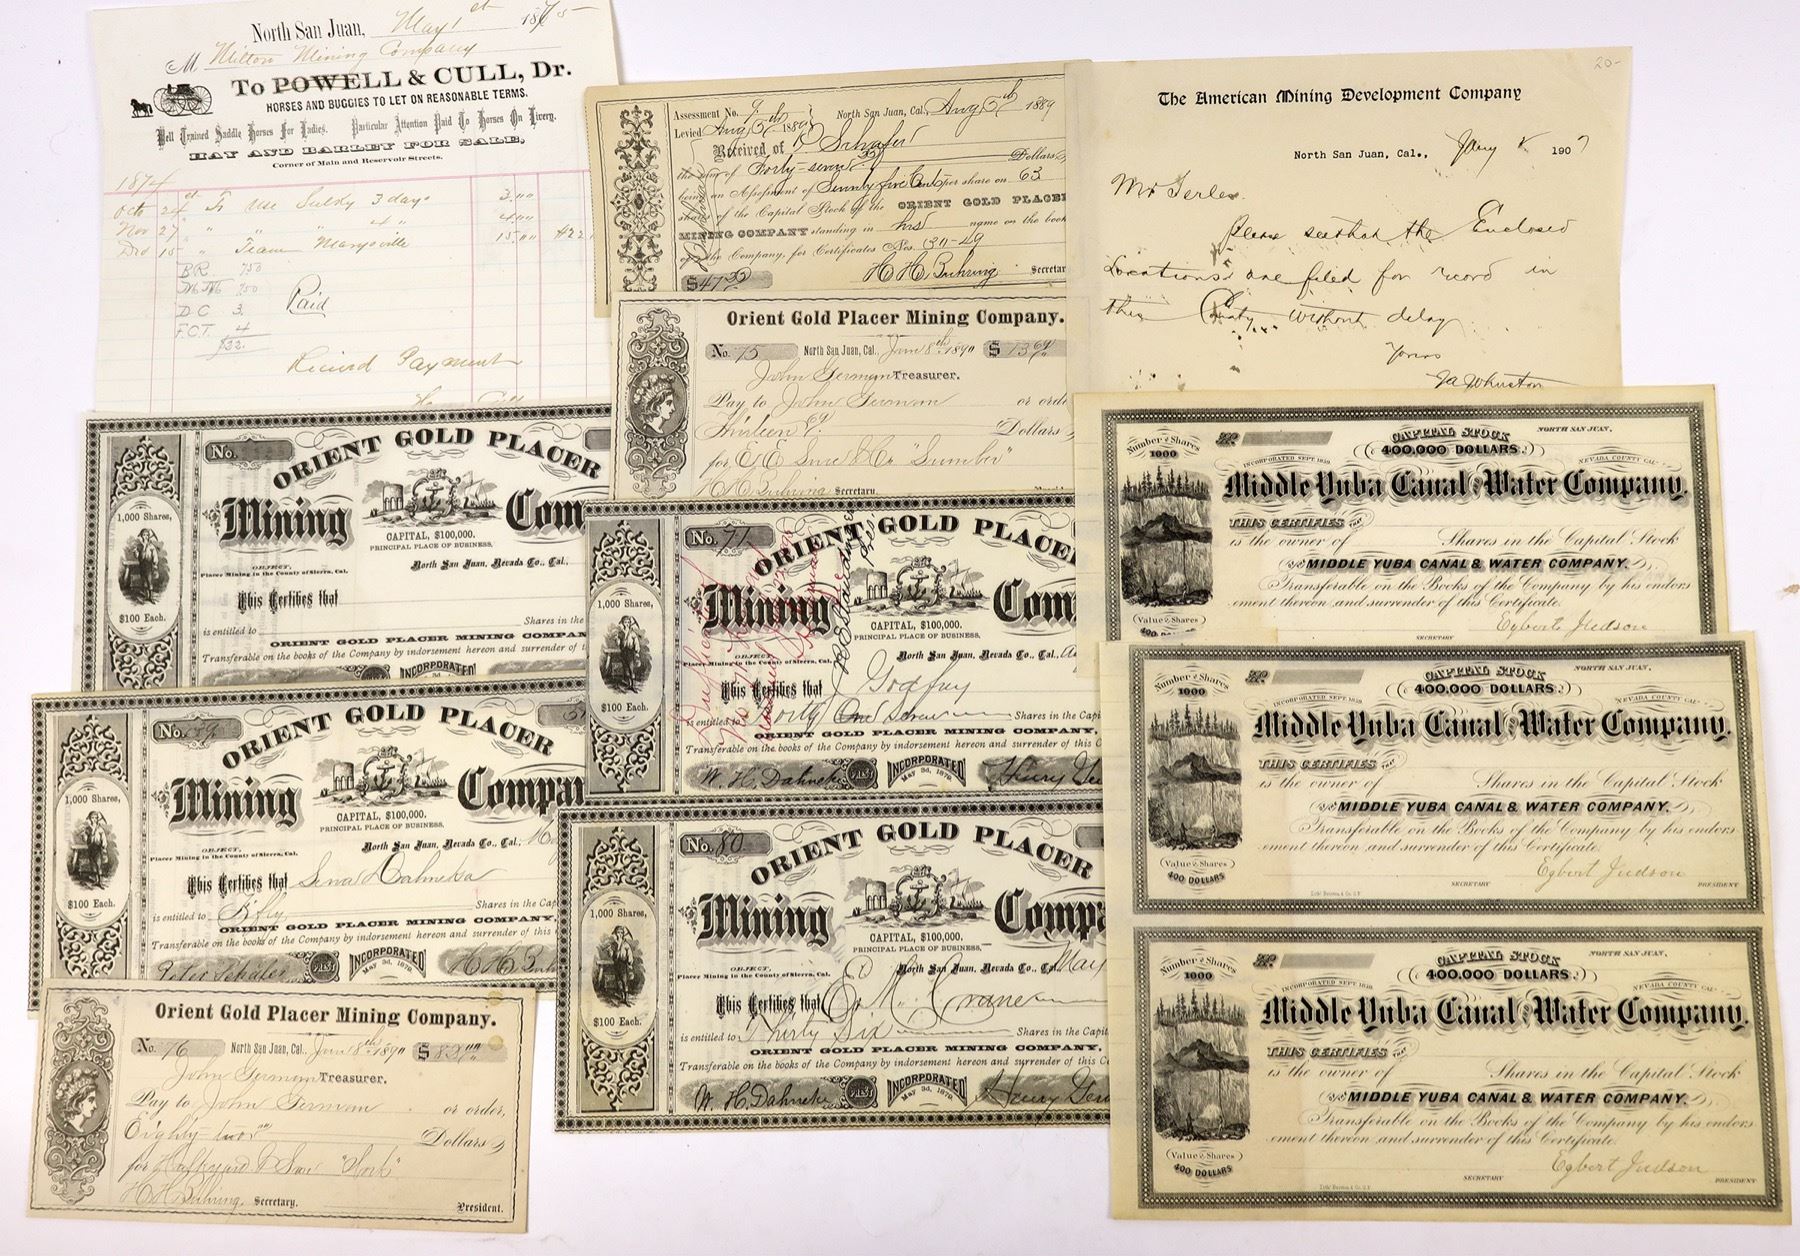 North San Juan, May 1st 1875
M Milton Mining Company
To POWELL & CULL, Dr.
HORSES AND BUGGIES TO LET ON REASONABLE TERMS.
Well Trained Saddle Horses For Ladies. Particular Attention Paid To Horses On Livery.
HAY AND BARLEY FOR SALE,
Corner of Main and Reservoir Streets.
1874
Oct 24 To Use Sulky 3 days 3.00
Nov 27 " " " 4 " 4.00
Dec 15 " Team Marysville 15.00 $22
B R 750
750
D C 3.
F.C.T. 4
Paid
Received Payment
Assessment No. 9th North San Juan, Cal., Aug 5th 1889
Levied Aug 5th 1889
Received of P Schafer
the sum of Forty-seven Dollars
being an Assessment of Seventy five Cents per share on 63
shares of the Capital Stock of the ORIENT GOLD PLACER
MINING COMPANY standing in his name on the book
of the Company, for Certificates Nos. 30-49
$47 H H Buhring Secretar
20-
The American Mining Development Company
North San Juan, Cal., Jany 1907
Mr
Please see that the Enclosed
Locations are filed for record in
this County without delay
Yours
Orient Gold Placer Mining Company.
No. 75 North San Juan, Cal., Jan 8th 1890 $ 13.69
John German Treasurer.
Pay to John German or orde
Thirteen 69 Dollars
for "Lumber"
H H Buhring Secretary.
No.
ORIENT GOLD PLACER
Mining Com
1,000 Shares,
$100 Each.
CAPITAL, $100,000.
PRINCIPAL PLACE OF BUSINESS,
North San Juan, Nevada Co., Cal.,
OBJECT,
Placer Mining in the County of Sierra, Cal.
This Certifies that
is entitled to Shares in the
ORIENT GOLD PLACER MINING COMPAN
Transferable on the books of the Company by indorsement hereon and surrender of t
INCORPORATED
No. 71
ORIENT GOLD PLACER
Mining Com
1,000 Shares,
$100 Each.
CAPITAL, $100,000.
PRINCIPAL PLACE OF BUSINESS,
North San Juan, Nevada Co., Cal.,
OBJECT,
Placer Mining in the County of Sierra, Cal.
This Certifies that J Godfrey
is entitled to Forty Shares in the Capi
ORIENT GOLD PLACER MINING COMPANY,
Transferable on the books of the Company by indorsement hereon and surrender of this C
W. H. Dahneke PRES'T INCORPORATED May 3d, 1878. Henry Ge
Number of Shares
1000
No.
CAPITAL STOCK
400,000 DOLLARS.
NORTH SAN JUAN,
INCORPORATED SEPT 1859 NEVADA COUNTY CAL
Middle Yuba Canal and Water Company.
THIS CERTIFIES THAT
is the owner of Shares in the Capital Stock
of the MIDDLE YUBA CANAL & WATER COMPANY.
Transferable on the Books of the Company by his endors
ement thereon and surrender of this Certificate.
(Value of Shares)
400
Egbert Judson
SECRETARY
No. 59
ORIENT GOLD PLACER
Mining Compa
1,000 Shares,
$100 Each.
CAPITAL, $100,000.
PRINCIPAL PLACE OF BUSINESS,
North San Juan, Nevada Co., Cal.,
OBJECT,
Placer Mining in the County of Sierra, Cal.
This Certifies that Lena Dahneke
is entitled to Fifty Shares in the Cap
ORIENT GOLD PLACER MINING COMPANY,
Transferable on the books of the Company by indorsement hereon and surrender of this
Peter Schafer PRES'T INCORPORATED May 3d, 1878. H H Buh
Number of Shares
1000
No.
CAPITAL STOCK
400,000 DOLLARS.
NORTH SAN JUAN,
INCORPORATED SEPT 1859 NEVADA COUNTY CAL
Middle Yuba Canal and Water Company.
THIS CERTIFIES THAT
is the owner of Shares in the Capital Stock
of the MIDDLE YUBA CANAL & WATER COMPANY.
Transferable on the Books of the Company by his endors
ement thereon and surrender of this Certificate.
(Value of Shares)
400 DOLLARS
Egbert Judson
SECRETARY PRESIDENT
No. 80
ORIENT GOLD PLACER
Mining Compa
1,000 Shares,
$100 Each.
CAPITAL, $100,000.
PRINCIPAL PLACE OF BUSINESS,
North San Juan, Nevada Co., Cal., May
OBJECT,
Placer Mining in the County of Sierra, Cal.
This Certifies that E. M. Crane
is entitled to Therty Six Shares in the Capit
ORIENT GOLD PLACER MINING COMPANY,
Transferable on the books of the Company by indorsement hereon and surrender of this Ce
W. H. Dahneke PRES'T INCORPORATED May 3d, 1878. Henry Ger
Orient Gold Placer Mining Company.
No. 76 North San Juan, Cal., Jan 8th 1890 $82.00
John German Treasurer.
Pay to John German or order,
Eighty two Dollars
for "Work"
H H Buhring Secretary. President.
Number of Shares
1000
No.
CAPITAL STOCK
400,000 DOLLARS.
NORTH SAN JUAN,
INCORPORATED SEPT 1859 NEVADA COUNTY CAL
Middle Yuba Canal and Water Company.
THIS CERTIFIES THAT
is the owner of Shares in the Capital Stock
of the MIDDLE YUBA CANAL & WATER COMPANY.
Transferable on the Books of the Company by his endors
ement thereon and surrender of this Certificate.
(Value of Shares)
400 DOLLARS
Egbert Judson
SECRETARY PRESIDENT